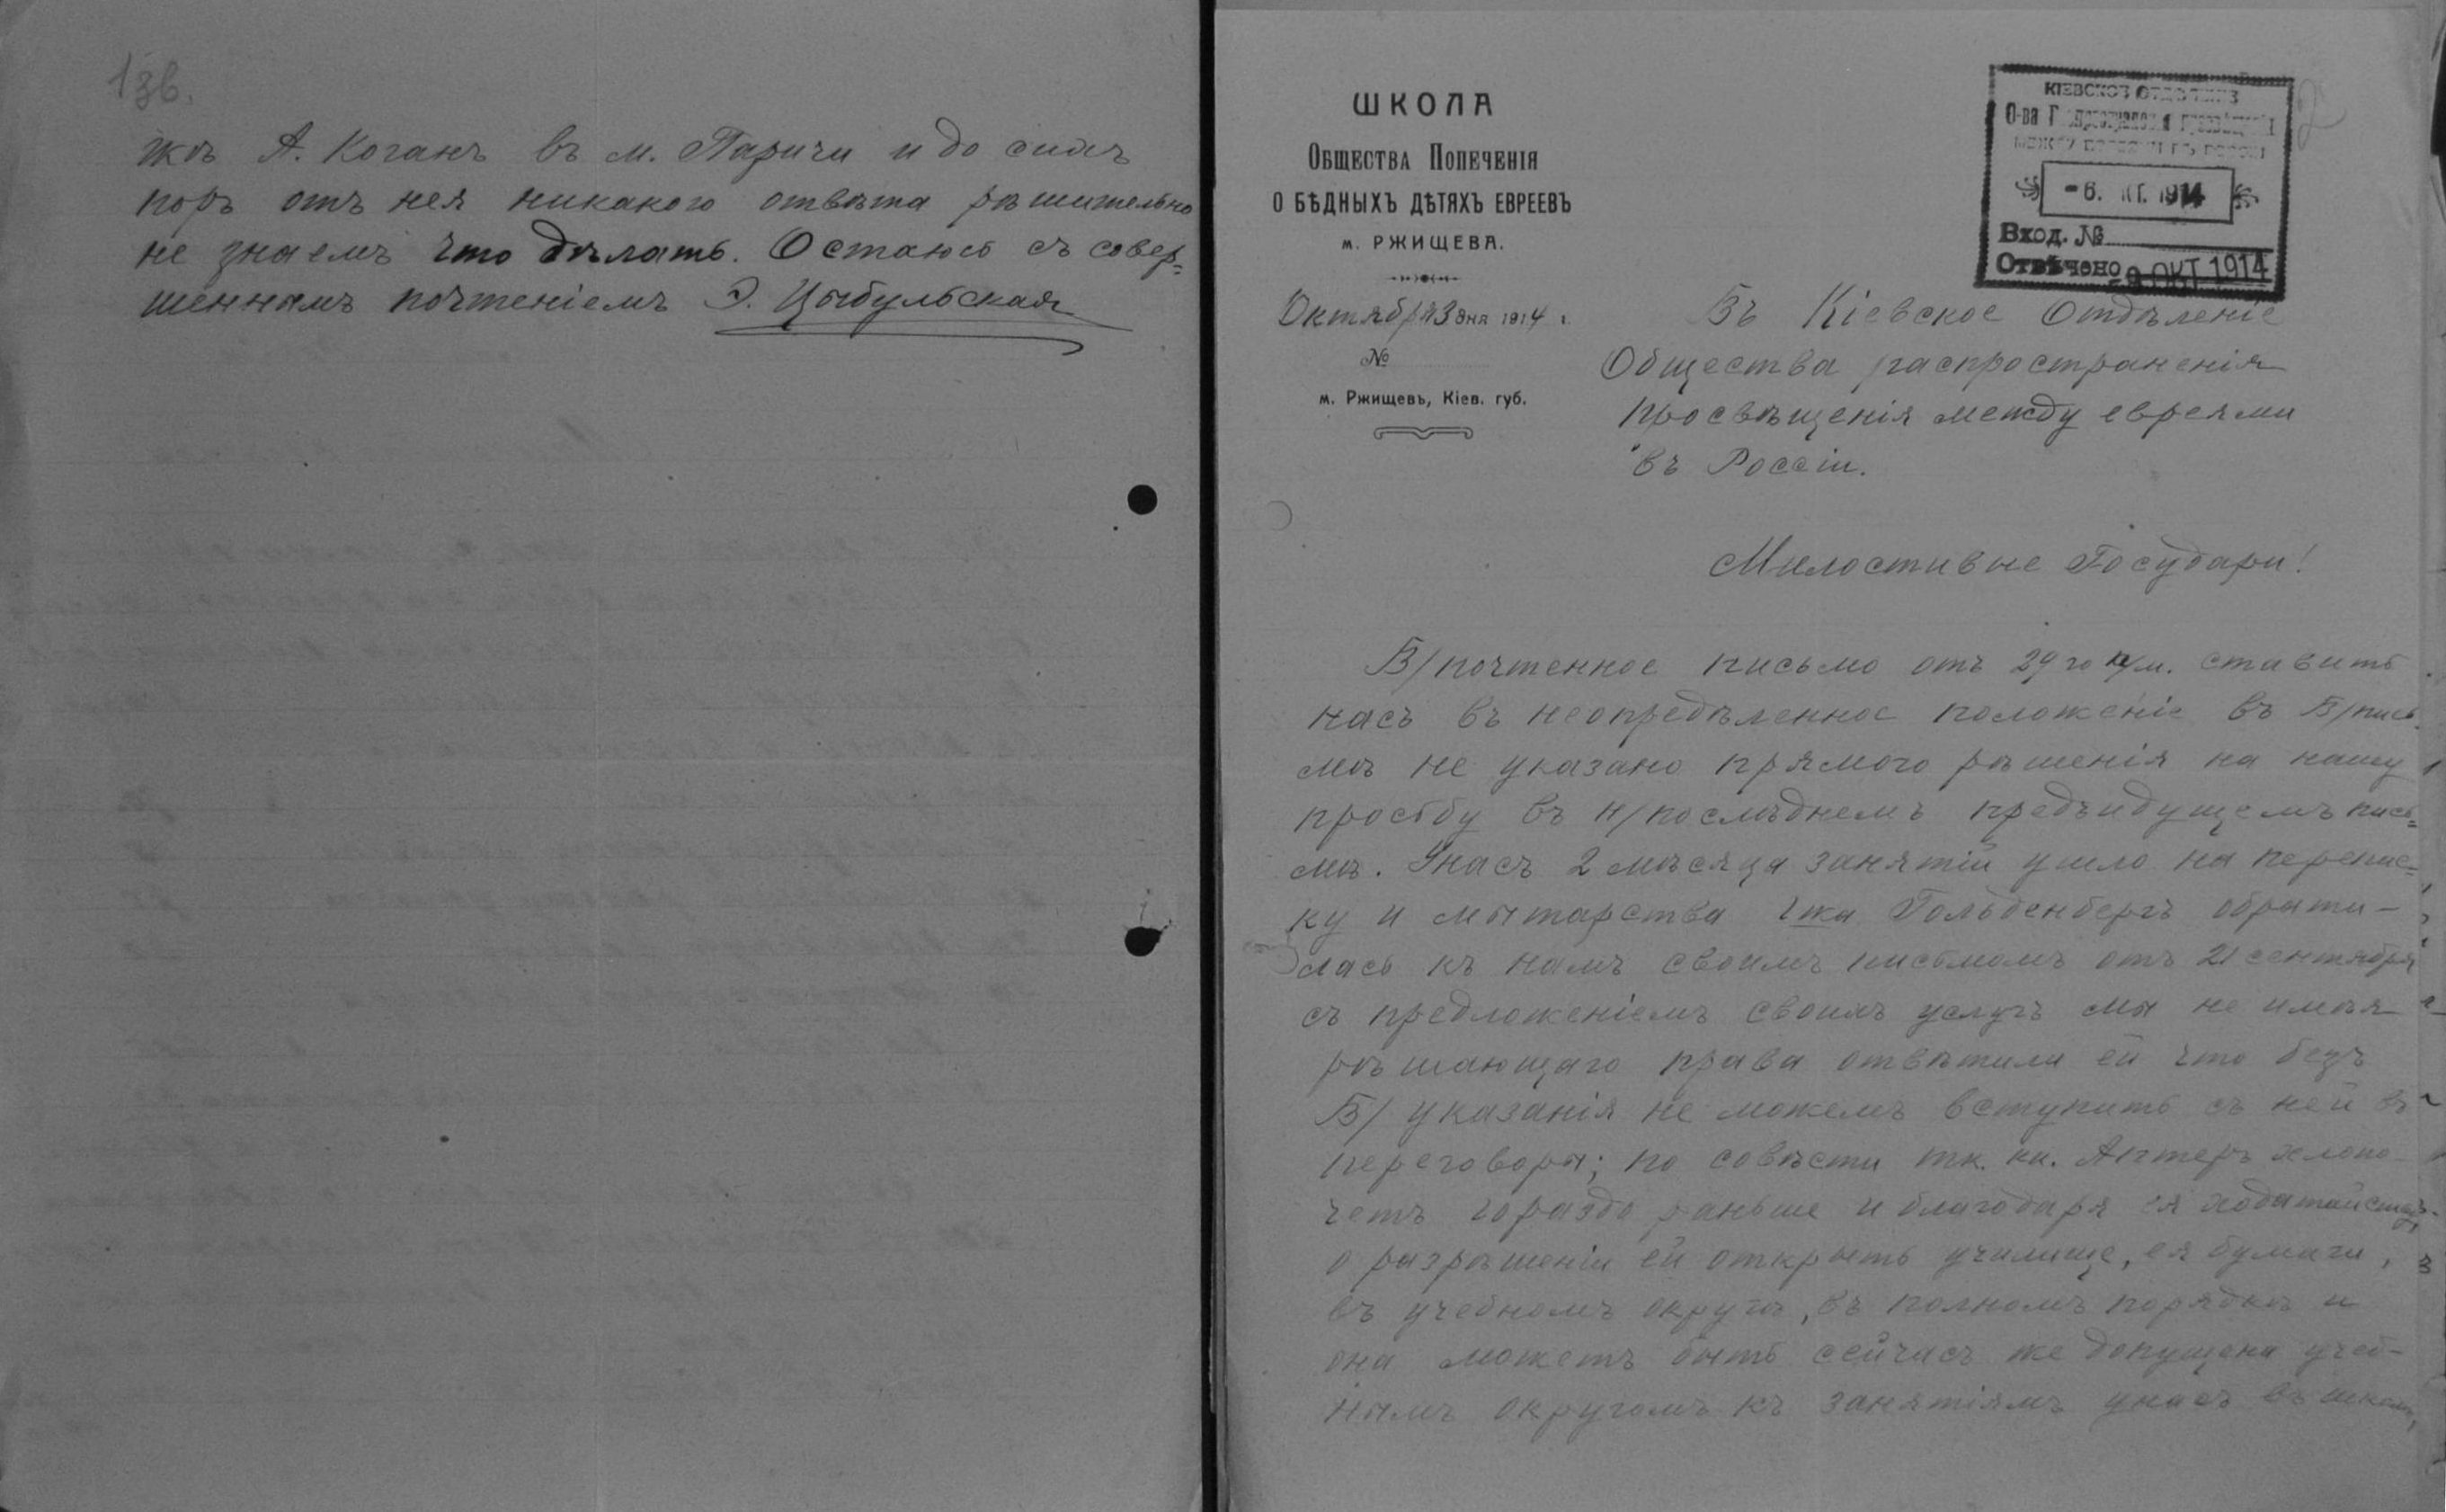 1зв.
жѣ А. Коганъ въ м. Паричи и до сихъ
поръ отъ нея никакого отвѣта рѣшительно
не знаемъ что дѣлать. Остаюсь съ совер=
шеннымъ почтеніемъ Э. Цыбульская
2
ШКОЛА
ОБЩЕСТВА ПОПЕЧЕНІЯ
О БѢДНЫХЪ ДѢТЯХЪ ЕВРЕЕВЪ
м. РЖИЩЕВА.
Октября 3 дня 1914 г.
№
м. Ржищевъ, Кіев. губ.
КІЕВСКОЕ ОТДѢЛЕНІЕ
О-ва
МЕЖДУ ЕВРЕЯМИ ВЪ РОССІИ
-6. КТ. 1914
Вход. №
Отвѣчено -9 ОКТ 1914
Въ Кіевское Отдѣленіе
Общества распространенія
просвѣщенія между евреями
въ Россіи.
Милостивые Государи!
В/почтенное письмо отъ 29го п/м. ставитъ
насъ въ неопредѣленное положеніе въ В/пись
мѣ не указано прямого рѣшенія на нашу
просьбу въ н/послѣднемъ предъидущемъ пись=
мѣ. Унасъ 2 мѣсяца занятій ушло на перепис=
ку и мытарства Гжа Гольденбергъ обрати-
лась къ намъ своимъ письмомъ отъ 21 сентября
съ предложеніемъ своихъ услугъ мы не имѣя
рѣшающаго права отвѣтили ей что безъ
В/ указанія не можемъ вступить съ ней въ
переговоры; по совѣсти тк. кк. Аптеръ хлопо-
четъ гораздо раньше и благодаря ея ходатайству
о разрѣшеніи ей открыть училище, ея бумаги,
въ учебномъ округѣ, въ полномъ порядкѣ и
она можетъ быть сейчасъ же допущена учеб-
нымъ округомъ къ занятіямъ унасъ въ школѣ,